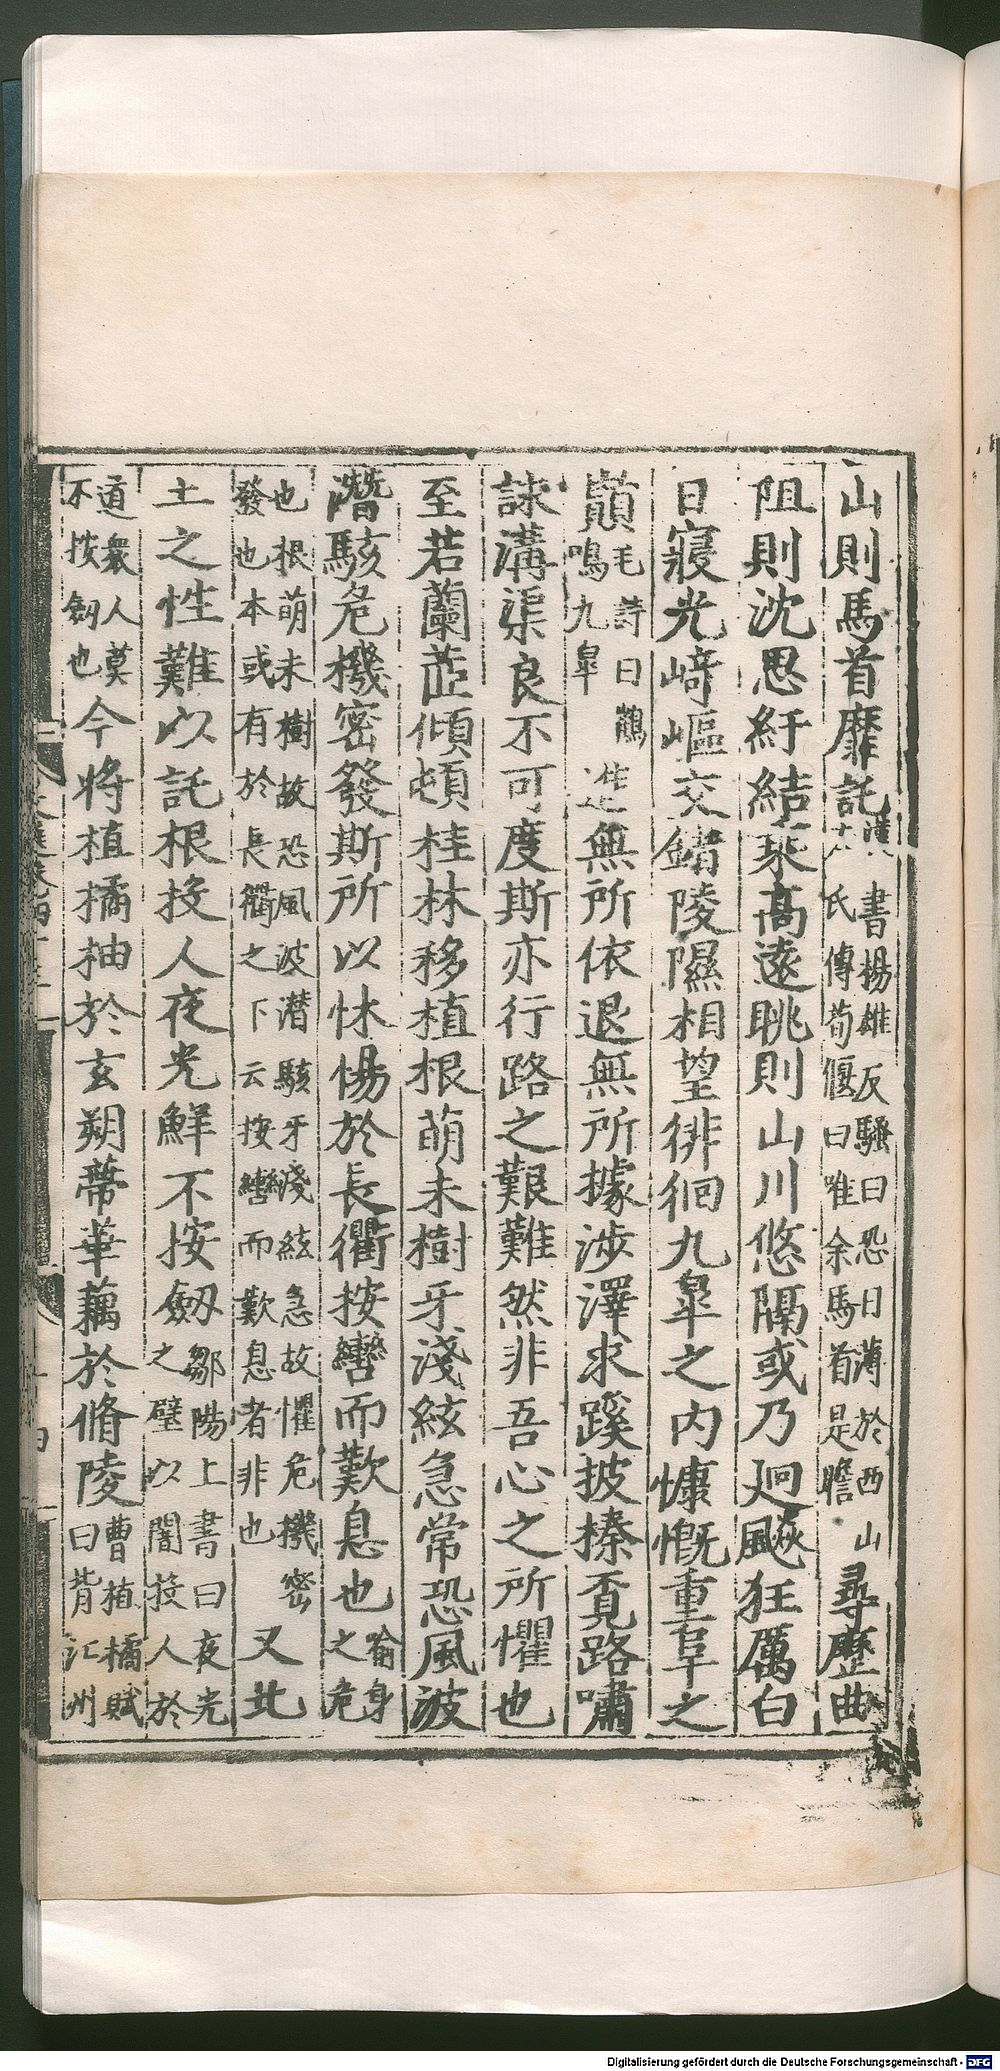 山則馬首靡託漢書揚雄反騷曰恐日薄於西山
氏傳荀偃曰唯余馬首是瞻尋歷曲
阻則沈思紆結乘高遠眺則山川悠隔或乃廻飈狂厲白
日寢光崎嶇交錯陵隰相望徘徊九臯之内慷慨重阜之
巔毛詩曰鶴
鳴九臯進無所依退無所據涉澤求蹊披榛覓路嘯
詠溝渠良不可度斯亦行路之艱難然非吾心之所懼也
至若蘭茝傾頓桂林移植根萌未樹牙淺絃急常恐風波
潛駭危機密發斯所以怵惕於長衢按轡而歎息也喻身
之危
也根萌未樹故恐風波潛駭牙淺絃急故懼危機密
發也本或有於長衢之下云按轡而歎息者非也又北
土之性難以託根投人夜光鮮不按劔鄒陽上書曰夜光
之璧以闇投人於
道衆人莫
不按劔也今將植橘柚於玄朔蔕華藕於脩陵曹植橘賦
曰背江州
Digitalisierung gefördert durch die Deutsche Forschungsgemeinschaft - DFG